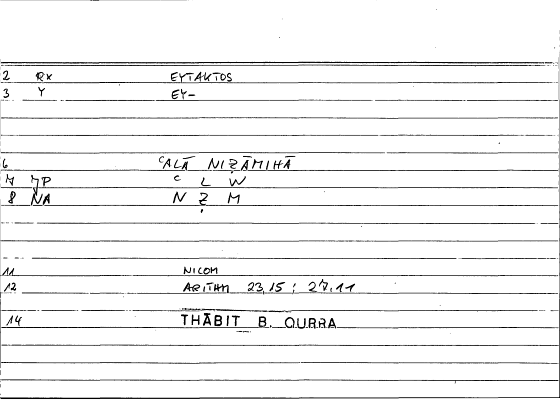 2 Rx EYTAKTOS
3 Y EY-
6 ʿALĀ NIẒĀMIHĀ
7 JP ʿ L W
8 NA N Ẓ M
11 NICOM
12 ARITHM 23,15 ; 27.11
14 THĀBIT B. QURRA